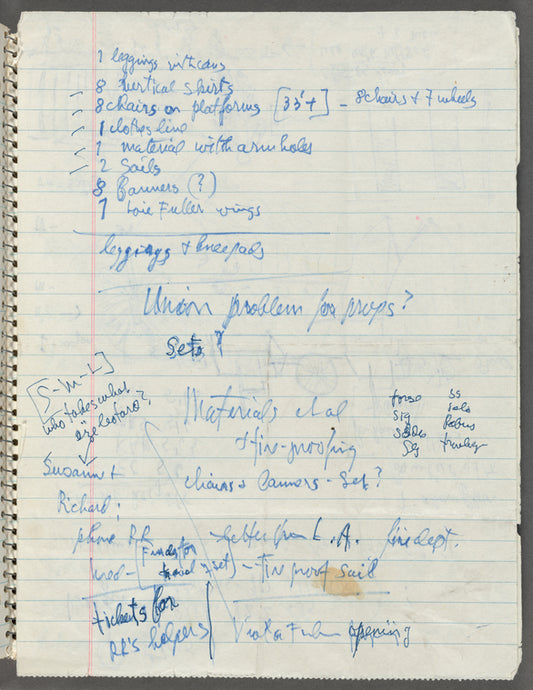 1 leggings with cans
8 vertical skirts
8 chairs on platforms [33'+] - 8 chairs + 7 wheels
1 clothes line
1 material with arm holes
2 Sails
8 Banners (?)
1 Loie Fuller wings
leggings + kneepads
Union problem for props?
Sets?
[S-M-L]
who takes what
size leotard?
Materials et al
+ fire-proofing
chairs + Banners - Set?
Susann +
Richard;
phone RR
Letter from L.A. fire dept.
wed -
set) - Fire proof Sail
tickets for
RR's helpers
opening